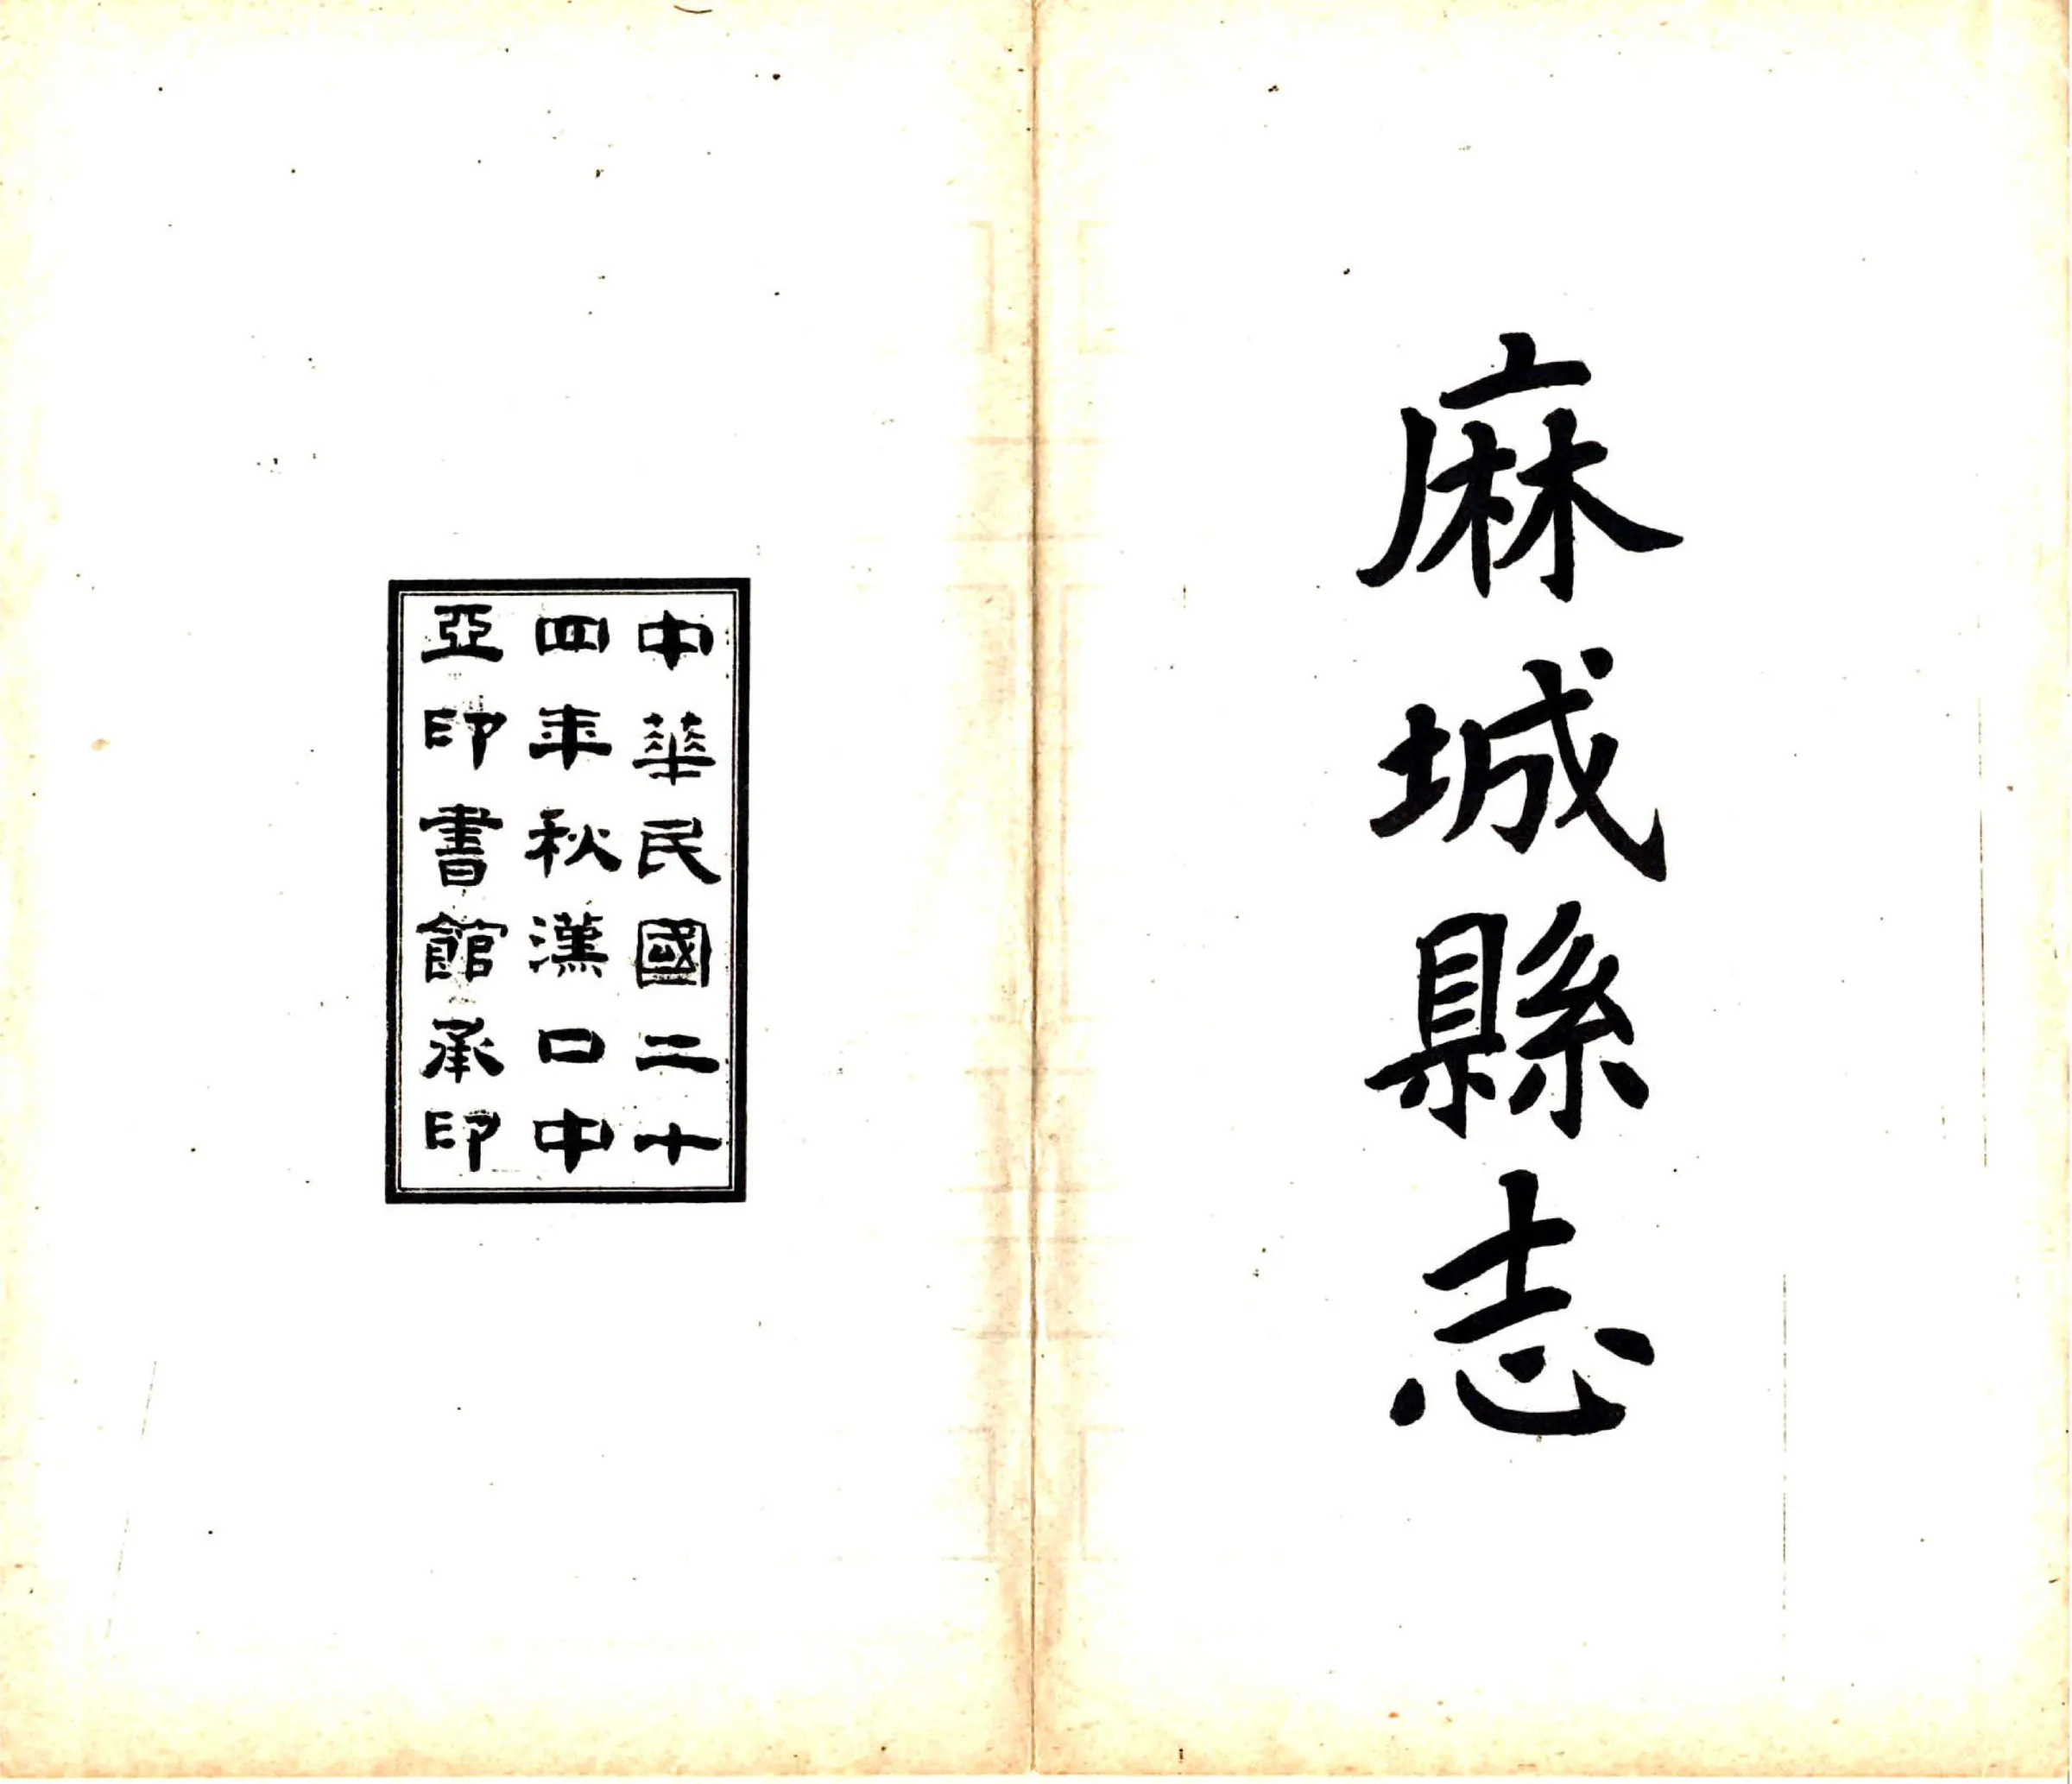 麻城縣志
中華民國二十
四年秋漢口中
亞印書館承印